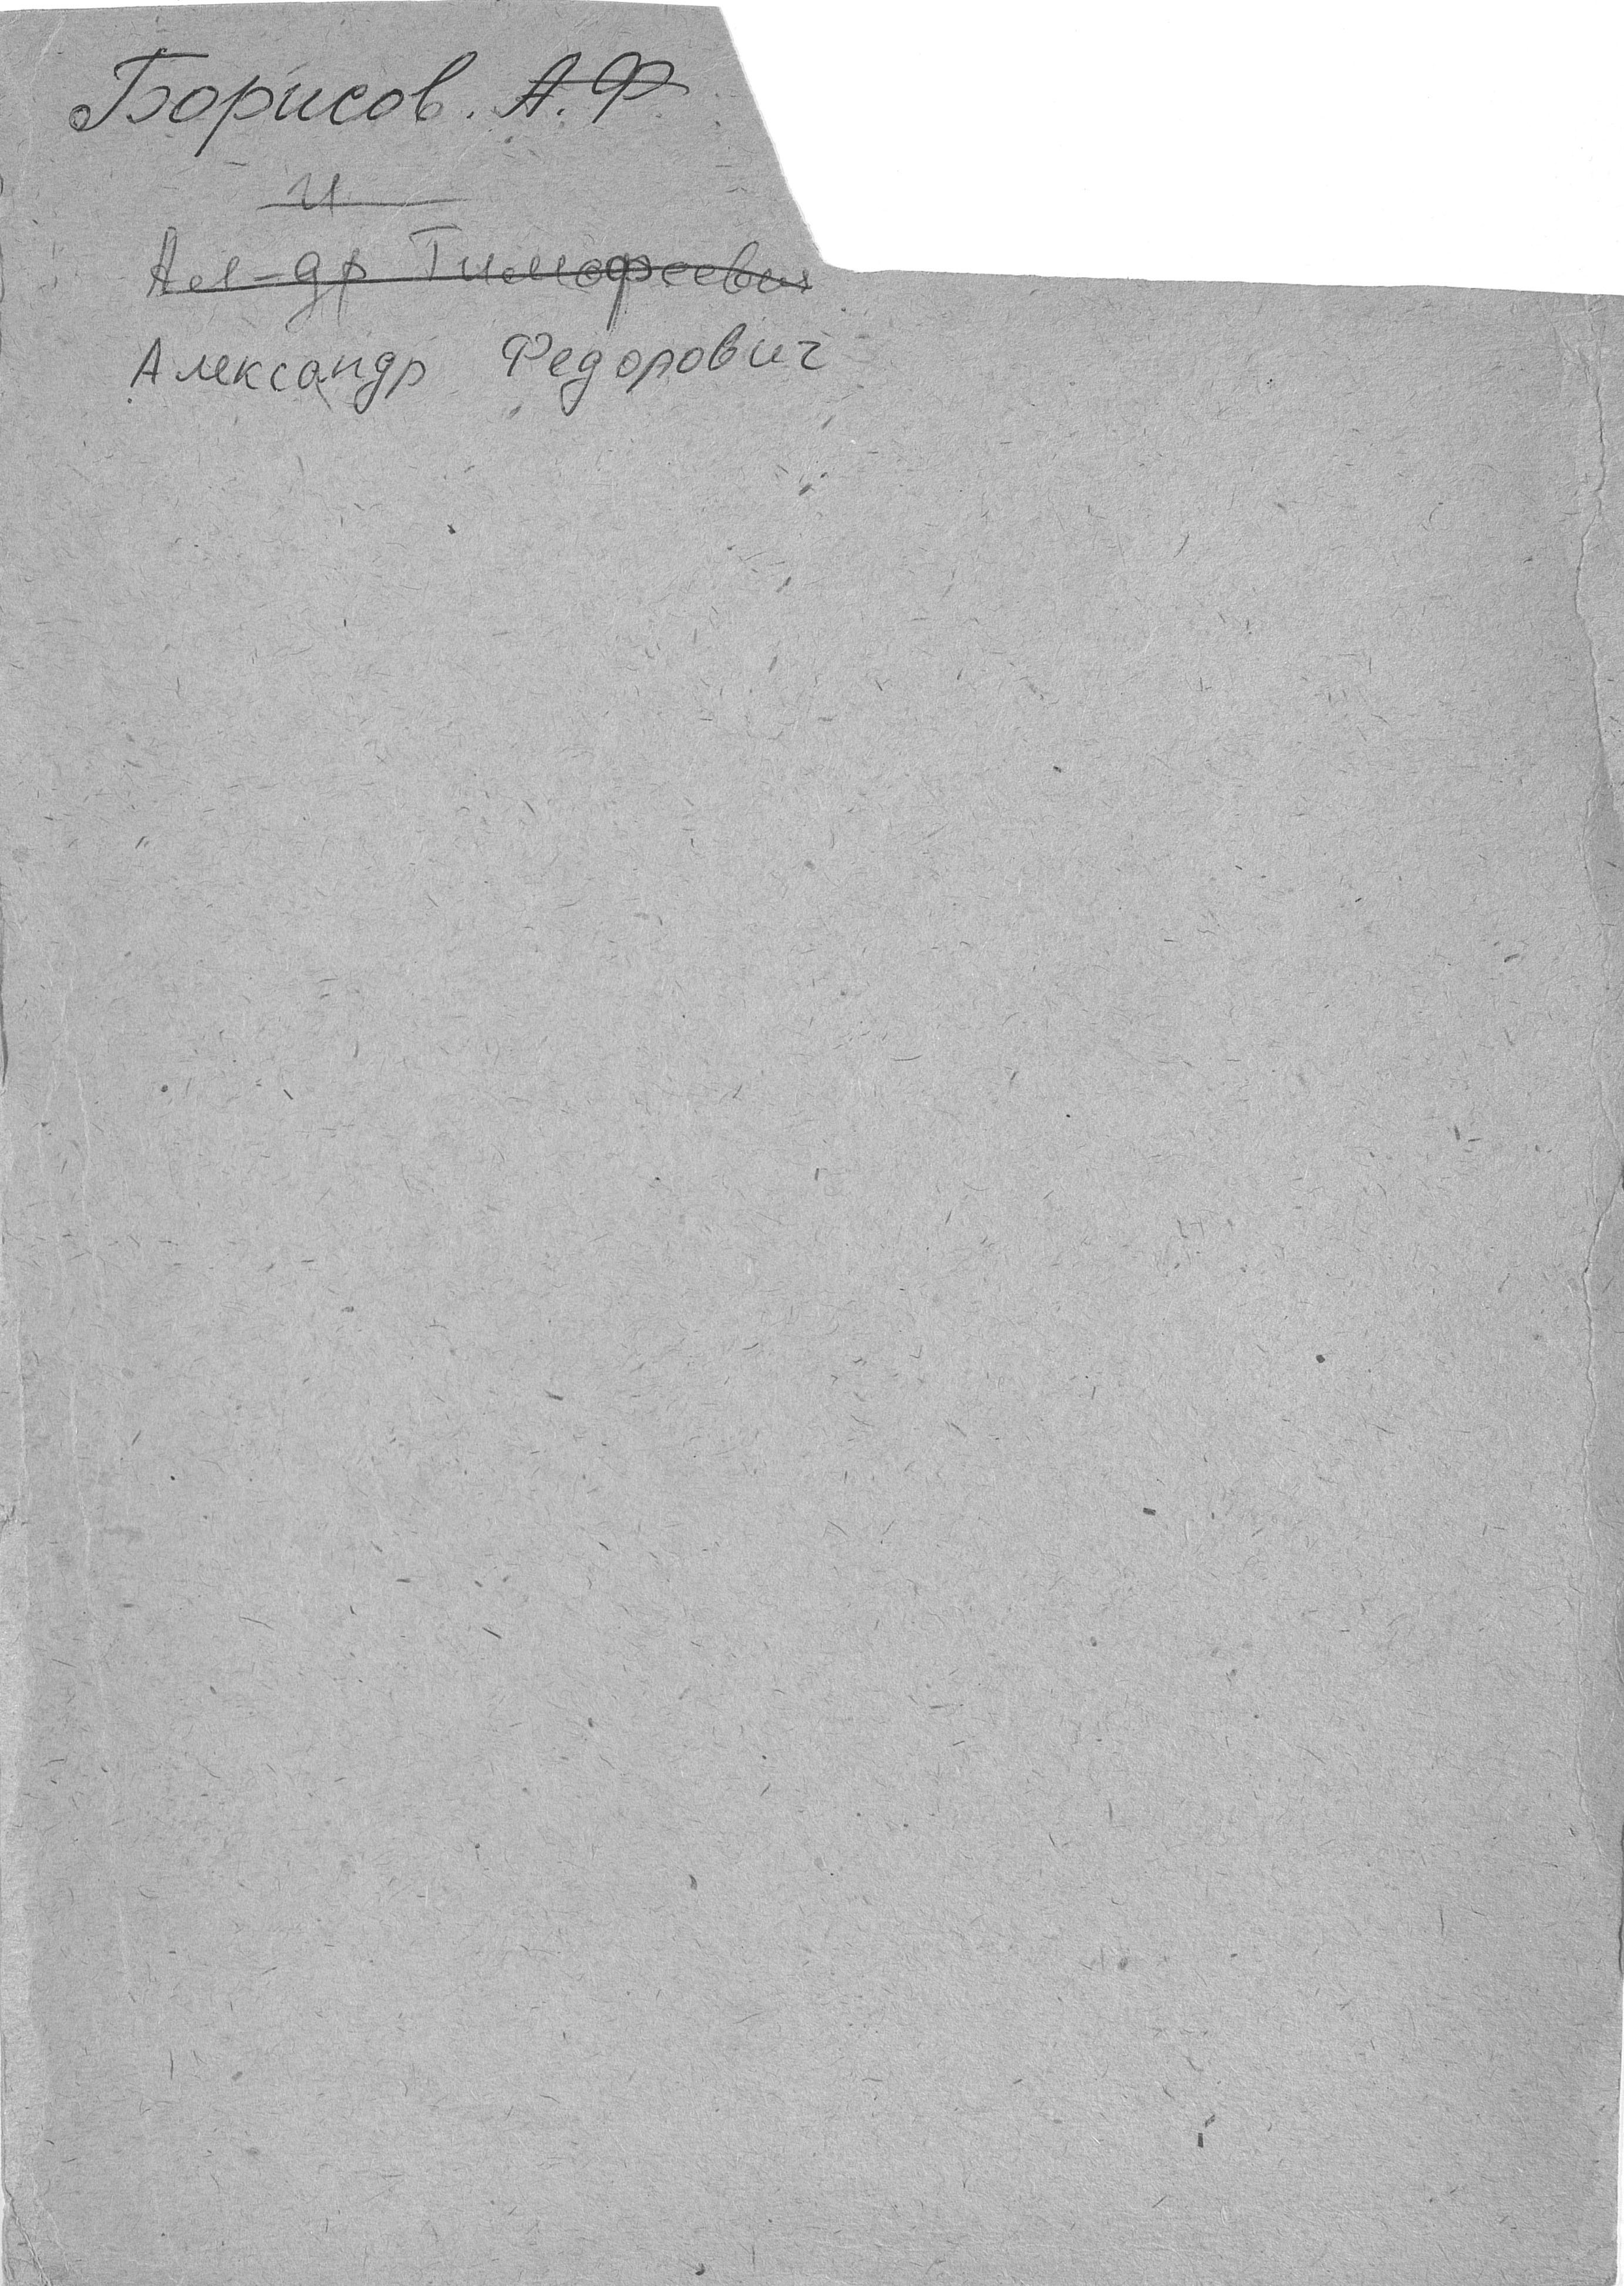 Борисов. А. Ф
и
Ал-др Тимофеевич
Александр Федорович